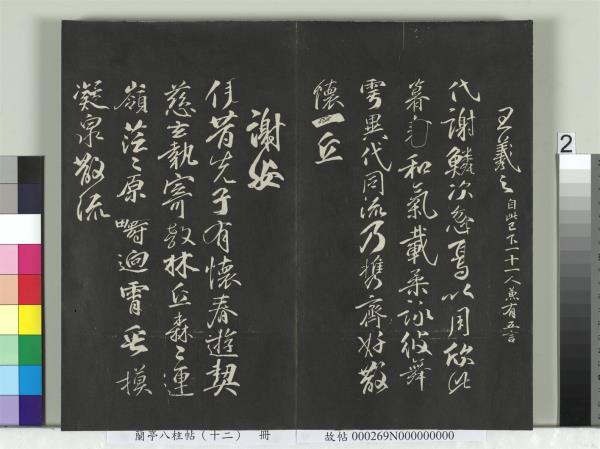 王羲之 自此已下一十一人兼有五言
代謝鱗次忽焉以周欣此
暮春和氣載柔詠彼舞
雩異代同流乃携齊好散
懷一丘
謝安
伊昔先子有懷春遊契
茲言執寄敖林丘森〻連
嶺茫〻原疇迥霄垂模
凝泉散流
2
蘭亭八柱帖（十二） 冊
故帖 000269N000000000